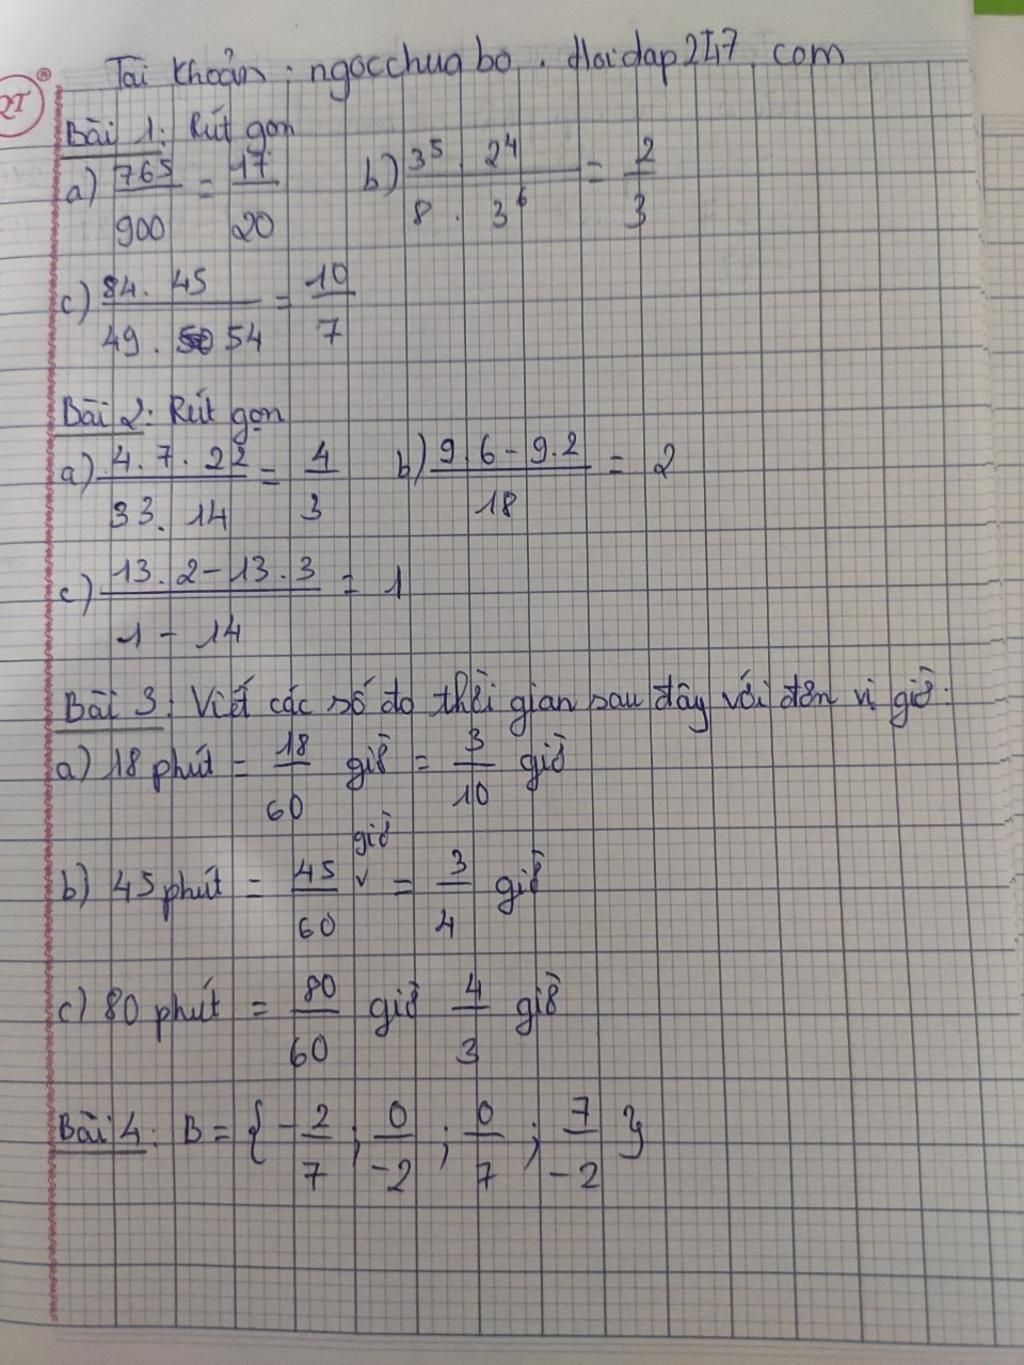 Tài khoản : ngocchuabo . Hoidap247.com
QT ®
Bài 1: Rút gọn
a) 765/900 = 17/20 b) 3⁵ . 2⁴ / 8 . 3⁶ = 2/3
c) 84 . 45 / 49 . 54 = 10/7
Bài 2: Rút gọn
a) 4 . 7 . 22 / 33 . 14 = 4/3 b) 9 . 6 - 9 . 2 / 18 = 2
c) 13 . 2 - 13 . 3 / 1 - 14 = 1
Bài 3: Viết các số đo thời gian sau đây với đơn vị giờ.
a) 18 phút = 18/60 giờ = 3/10 giờ
b) 45 phút = 45/60 giờ = 3/4 giờ
c) 80 phút = 80/60 giờ 4/3 giờ
Bài 4: B = { -2/7 ; 0/-2 ; 0/7 ; 7/-2 }